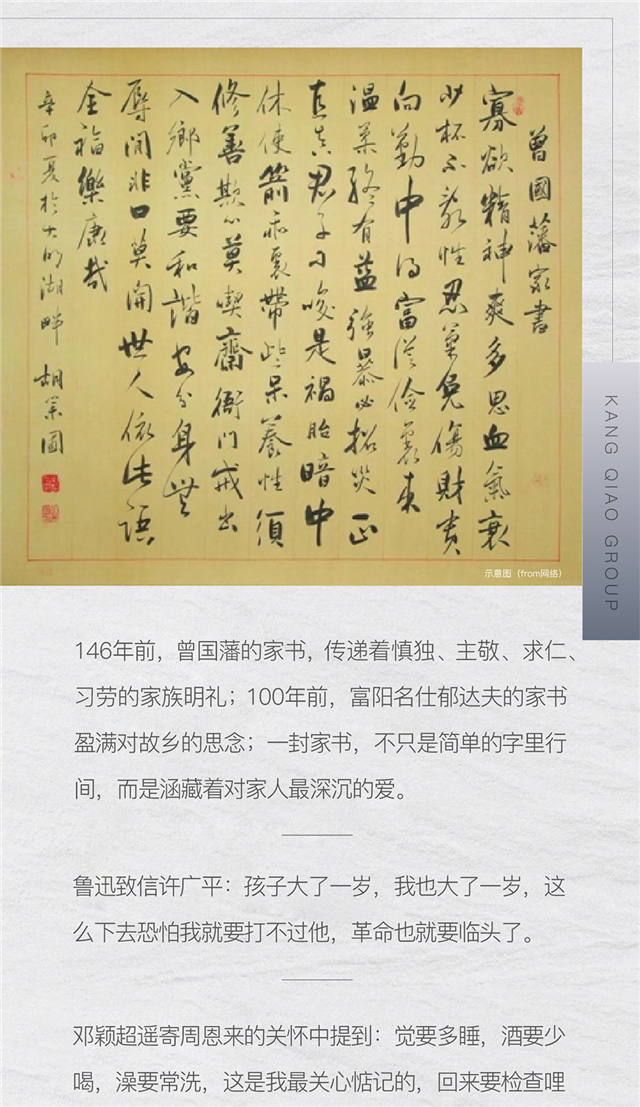 曾國藩家書
寡欲精神爽多思血氣衰
少杯不亂性忍氣免傷財貴
向勤中得富從儉裏来
温柔終有益強暴必招災正
直真君子刁唆是禍胎暗中
休使箭乖裏帶些呆養性須
修善欺心莫喫齋衙門戒出
入鄉黨要和諧安分身無
辱閒非口莫開世人依此語
全福樂康哉
辛卯夏於大明湖畔 胡
示意图（from网络）
KANG QIAO GROUP
146年前，曾国藩的家书，传递着慎独、主敬、求仁、
习劳的家族明礼；100年前，富阳名仕郁达夫的家书
盈满对故乡的思念；一封家书，不只是简单的字里行
间，而是涵藏着对家人最深沉的爱。
鲁迅致信许广平：孩子大了一岁，我也大了一岁，这
么下去恐怕我就要打不过他，革命也就要临头了。
邓颖超遥寄周恩来的关怀中提到：觉要多睡，酒要少
喝，澡要常洗，这是我最关心惦记的，回来要检查哩